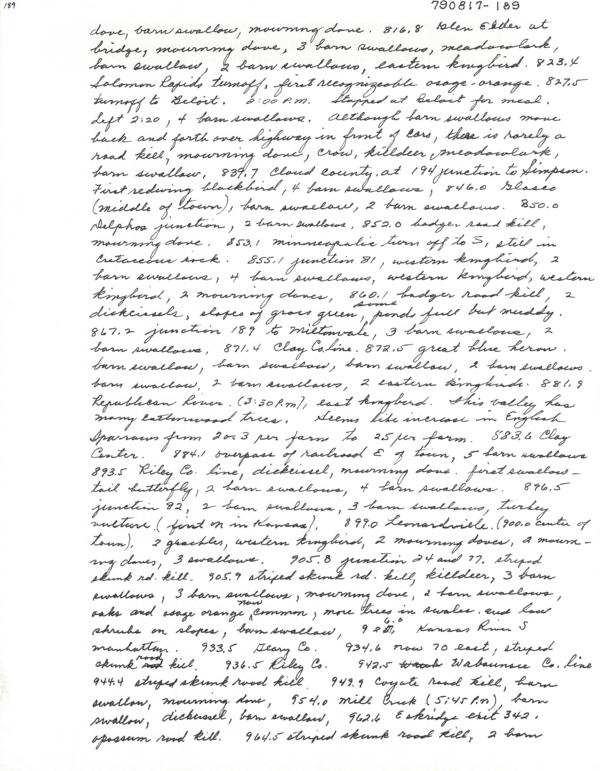 189
790817-189
dove, barn swallow, mourning dove. 816.8 Glen Elder at
bridge, mourning dove, 3 barn swallows, meadowlark,
barn swallow, 2 barn swallows, eastern kingbird. 823.4
Solomon Rapids turnoff, first recognizeable osage-orange. 827.5
turnoff to Beloit. 2:00 P.M. Stopped at Beloit for meal.
left 2:20, 4 barn swallows. Although barn swallows move
back and forth over highway in front of cars, there is rarely a
road kill, mourning dove, crow, killdeer, meadowlark,
barn swallow, 839.7 Cloud county, at 194 junction to Simpson.
First redwing blackbird, 4 barn swallows, 846.0 Glasco
(middle of town), barn swallow, 2 barn swallows. 850.0
Delphos junction, 2 barn swallows, 852.0 badger road kill,
mourning dove. 853.1 Minneapolis turn off to S, still in
Cretaceous rock. 855.1 junction 81, western kingbird, 2
barn swallows, 4 barn swallows, western kingbird, western
kingbird, 2 mourning doves, 860.1 badger road kill, 2
dickcissels, slopes of grass green, some ponds full but muddy.
867.2 junction 189 to Miltonvale, 3 barn swallows, 2
barn swallows, 871.4 Clay Co. line. 872.5 great blue heron.
barn swallow, barn swallow, barn swallow, 2 barn swallows.
barn swallow, 2 barn swallows, 2 eastern kingbirds. 881.9
Republican River. (3:30 P.M), east kingbird. This valley has
many cottonwood trees. Seems like increase in English
Sparrows from 2 or 3 per farm to 25 per farm. 883.6 Clay
Center. 884.1 overpass of railroad E of town, 5 barn swallows
893.5 Riley Co. line, dickcissel, mourning dove. first swallow-
tail butterfly, 2 barn swallows, 4 barn swallows. 896.5
junction 82, 2 barn swallows, 3 barn swallows, turkey
vulture (first in Kansas). 899.0 Leonardville. (900.0 center of
town). 2 grackles, western kingbird, 2 mourning doves, 2 mourn-
ing doves, 3 swallows. 905.8 junction 24 and 77. striped
skunk rd. kill. 905.9 striped skunk rd. kill, killdeer, 3 barn
swallows, 3 barn swallows, mourning dove, 2 barn swallows,
oaks and osage orange now common, more trees in swales and low
shrubs on slopes, barn swallow, Kansas River S
Manhattan. 933.5 Geary Co. 934.6 now 70 east, striped
skunk road kill. 936.5 Riley Co. 942.5 Wabaunsee Co. line
944.4 striped skunk road kill. 949.9 Coyote road kill, barn
swallow, mourning dove, 954.0 Mill Creek (5:45 P.M), barn
swallow, dickcissel, barn swallow, 962.6 Eskridge exit 342.
opossum road kill. 964.5 striped skunk road kill, 2 barn